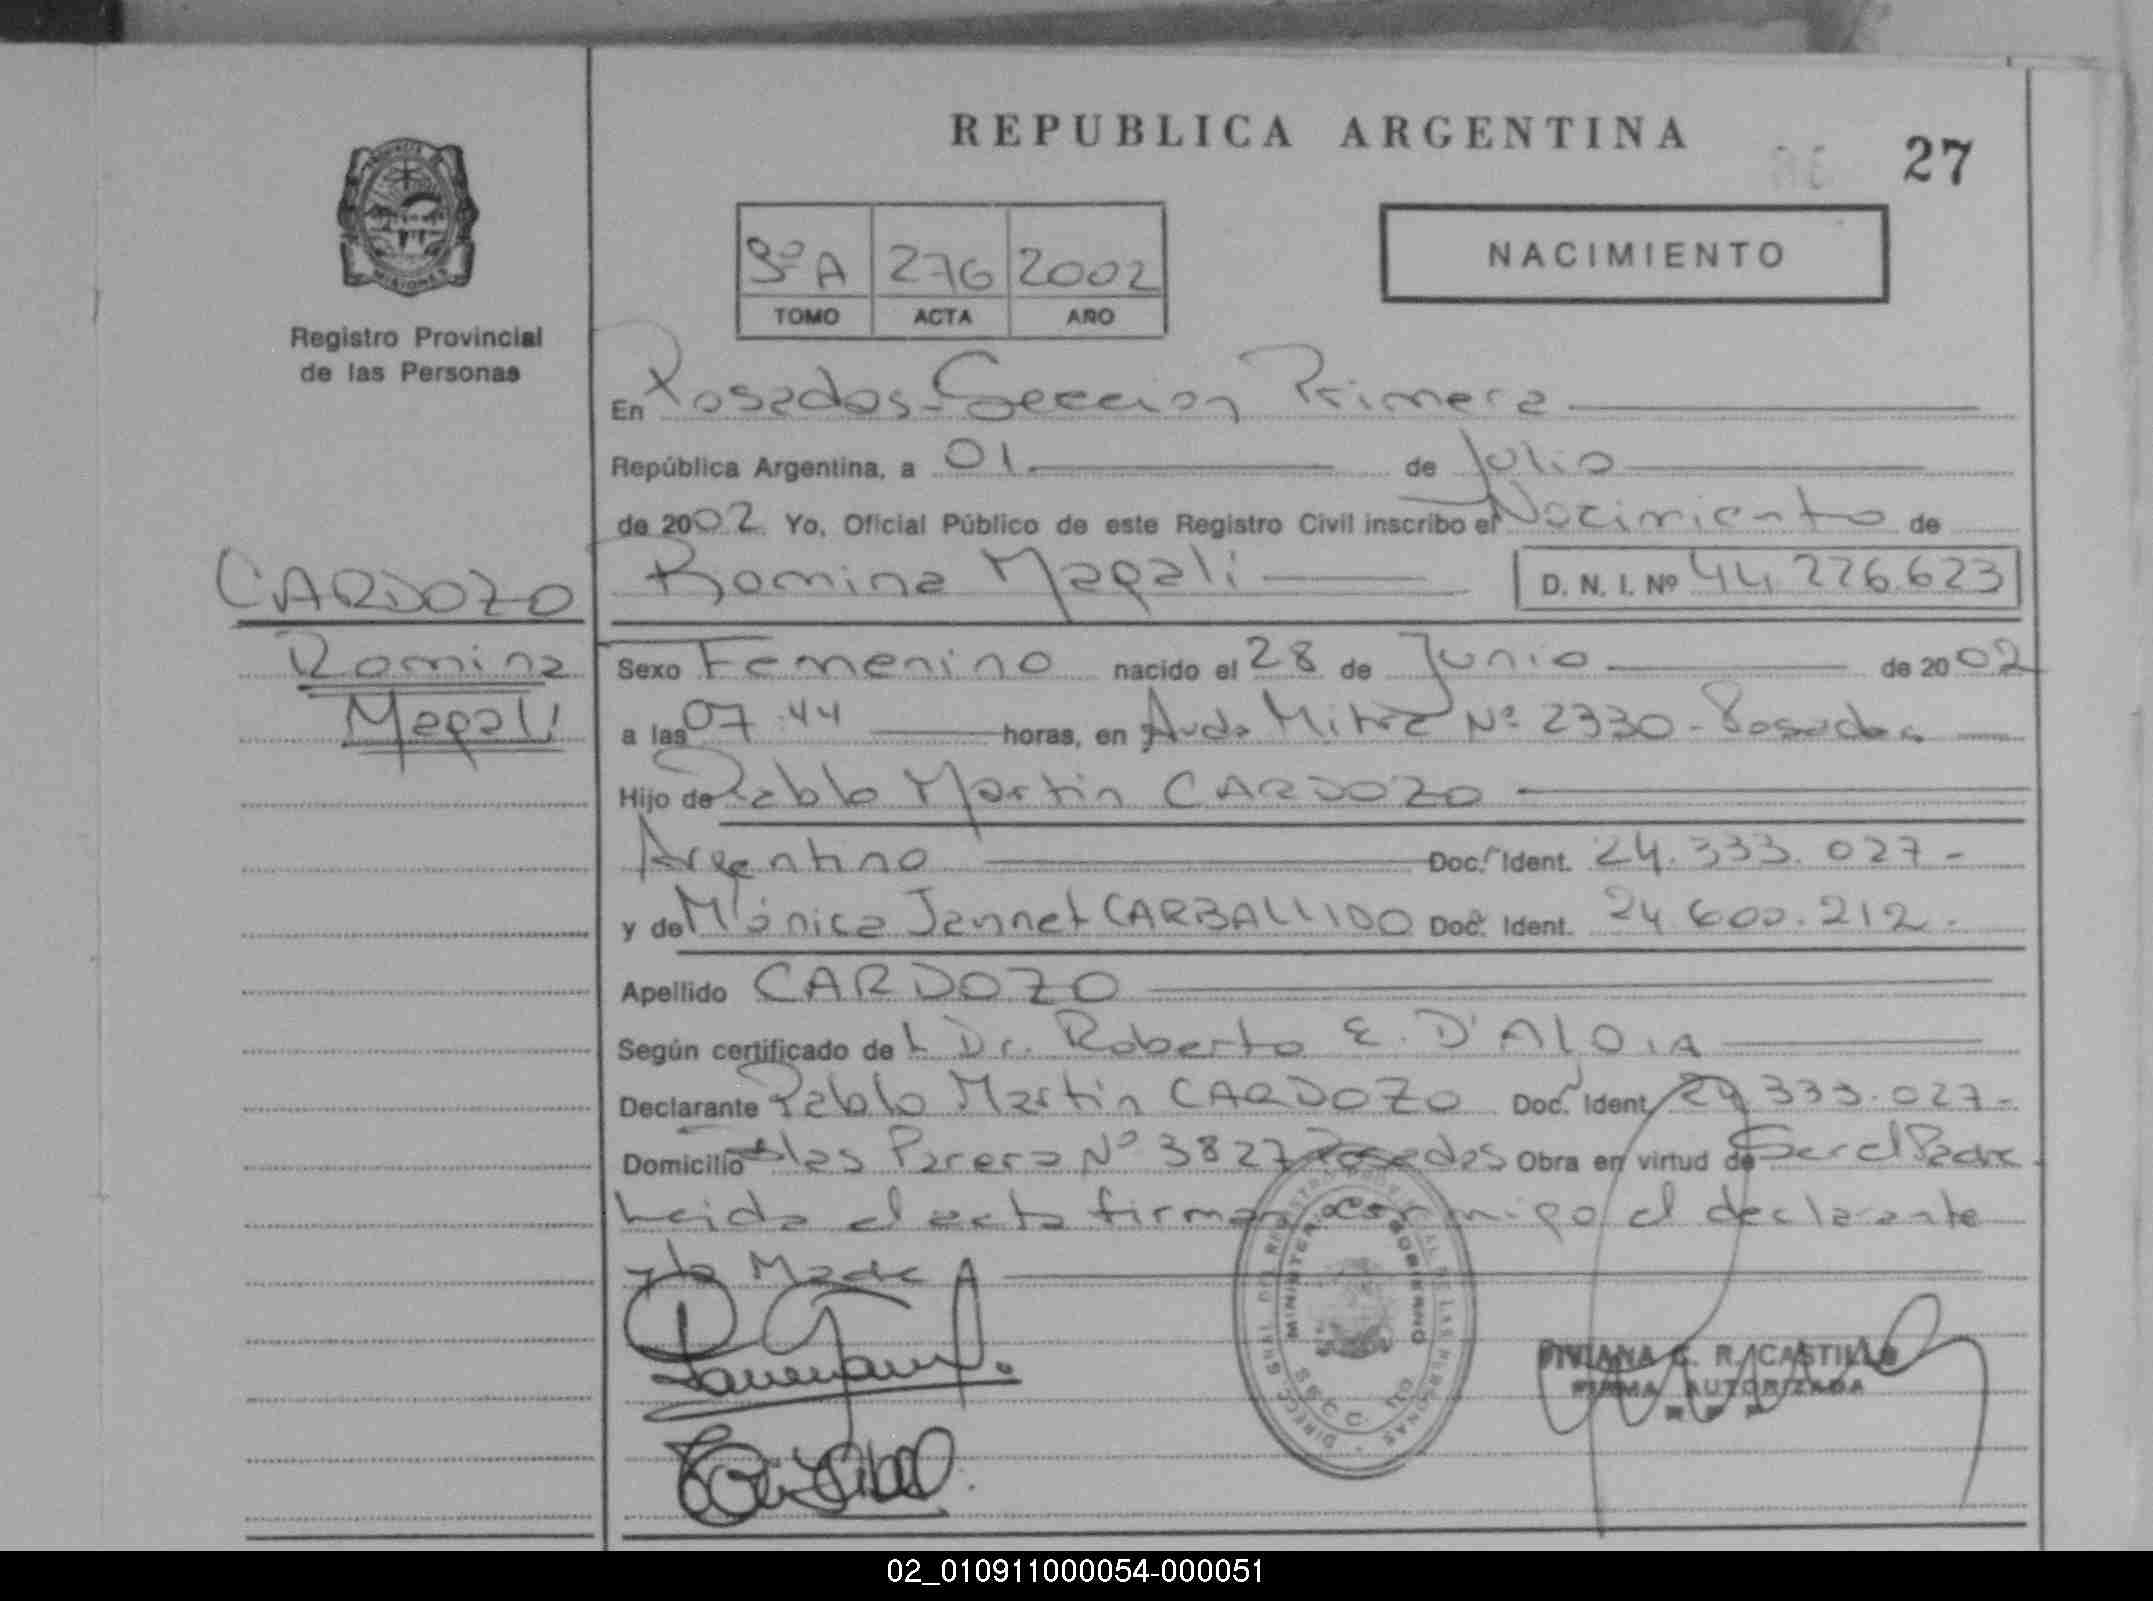 REPUBLICA ARGENTINA
27
NACIMIENTO
3º A 276 2002
TOMO ACTA AÑO
PROVINCIA DE MISIONES
Registro Provincial
de las Personas
CARDOZO
Romina
Magali
En Posadas-Seccion Primera
República Argentina, a 01 de Julio
de 2002 Yo, Oficial Público de este Registro Civil inscribo el Nacimiento de
Romina Magali D. N. I. Nº 44.226.623
Sexo Femenino nacido el 28 de Junio de 2002
a las 07:44 horas, en Avda Mitre Nº 2330-Posadas
Hijo de Pablo Martin CARDOZO
Argentino Doc. Ident. 24.333.027-
y de Mónica Jannet CARBALLIDO Doc. Ident. 24.600.212-
Apellido CARDOZO
Según certificado del Dr. Roberto E. D'ALOIA
Declarante Pablo Martin CARDOZO Doc. Ident. 24.333.027-
Domicilio Blas Parera Nº 3827 Posadas Obra en virtud de Ser el Padre
Leida el acta firman conmigo el declarante
y la Madre
DIRECC. GRAL. DEL REGISTRO PROVINCIAL DE LAS PERSONAS
MINISTERIO DE GOBIERNO
VIVIANA C. R. CASTILLO
FIRMA AUTORIZADA
02_010911000054-000051